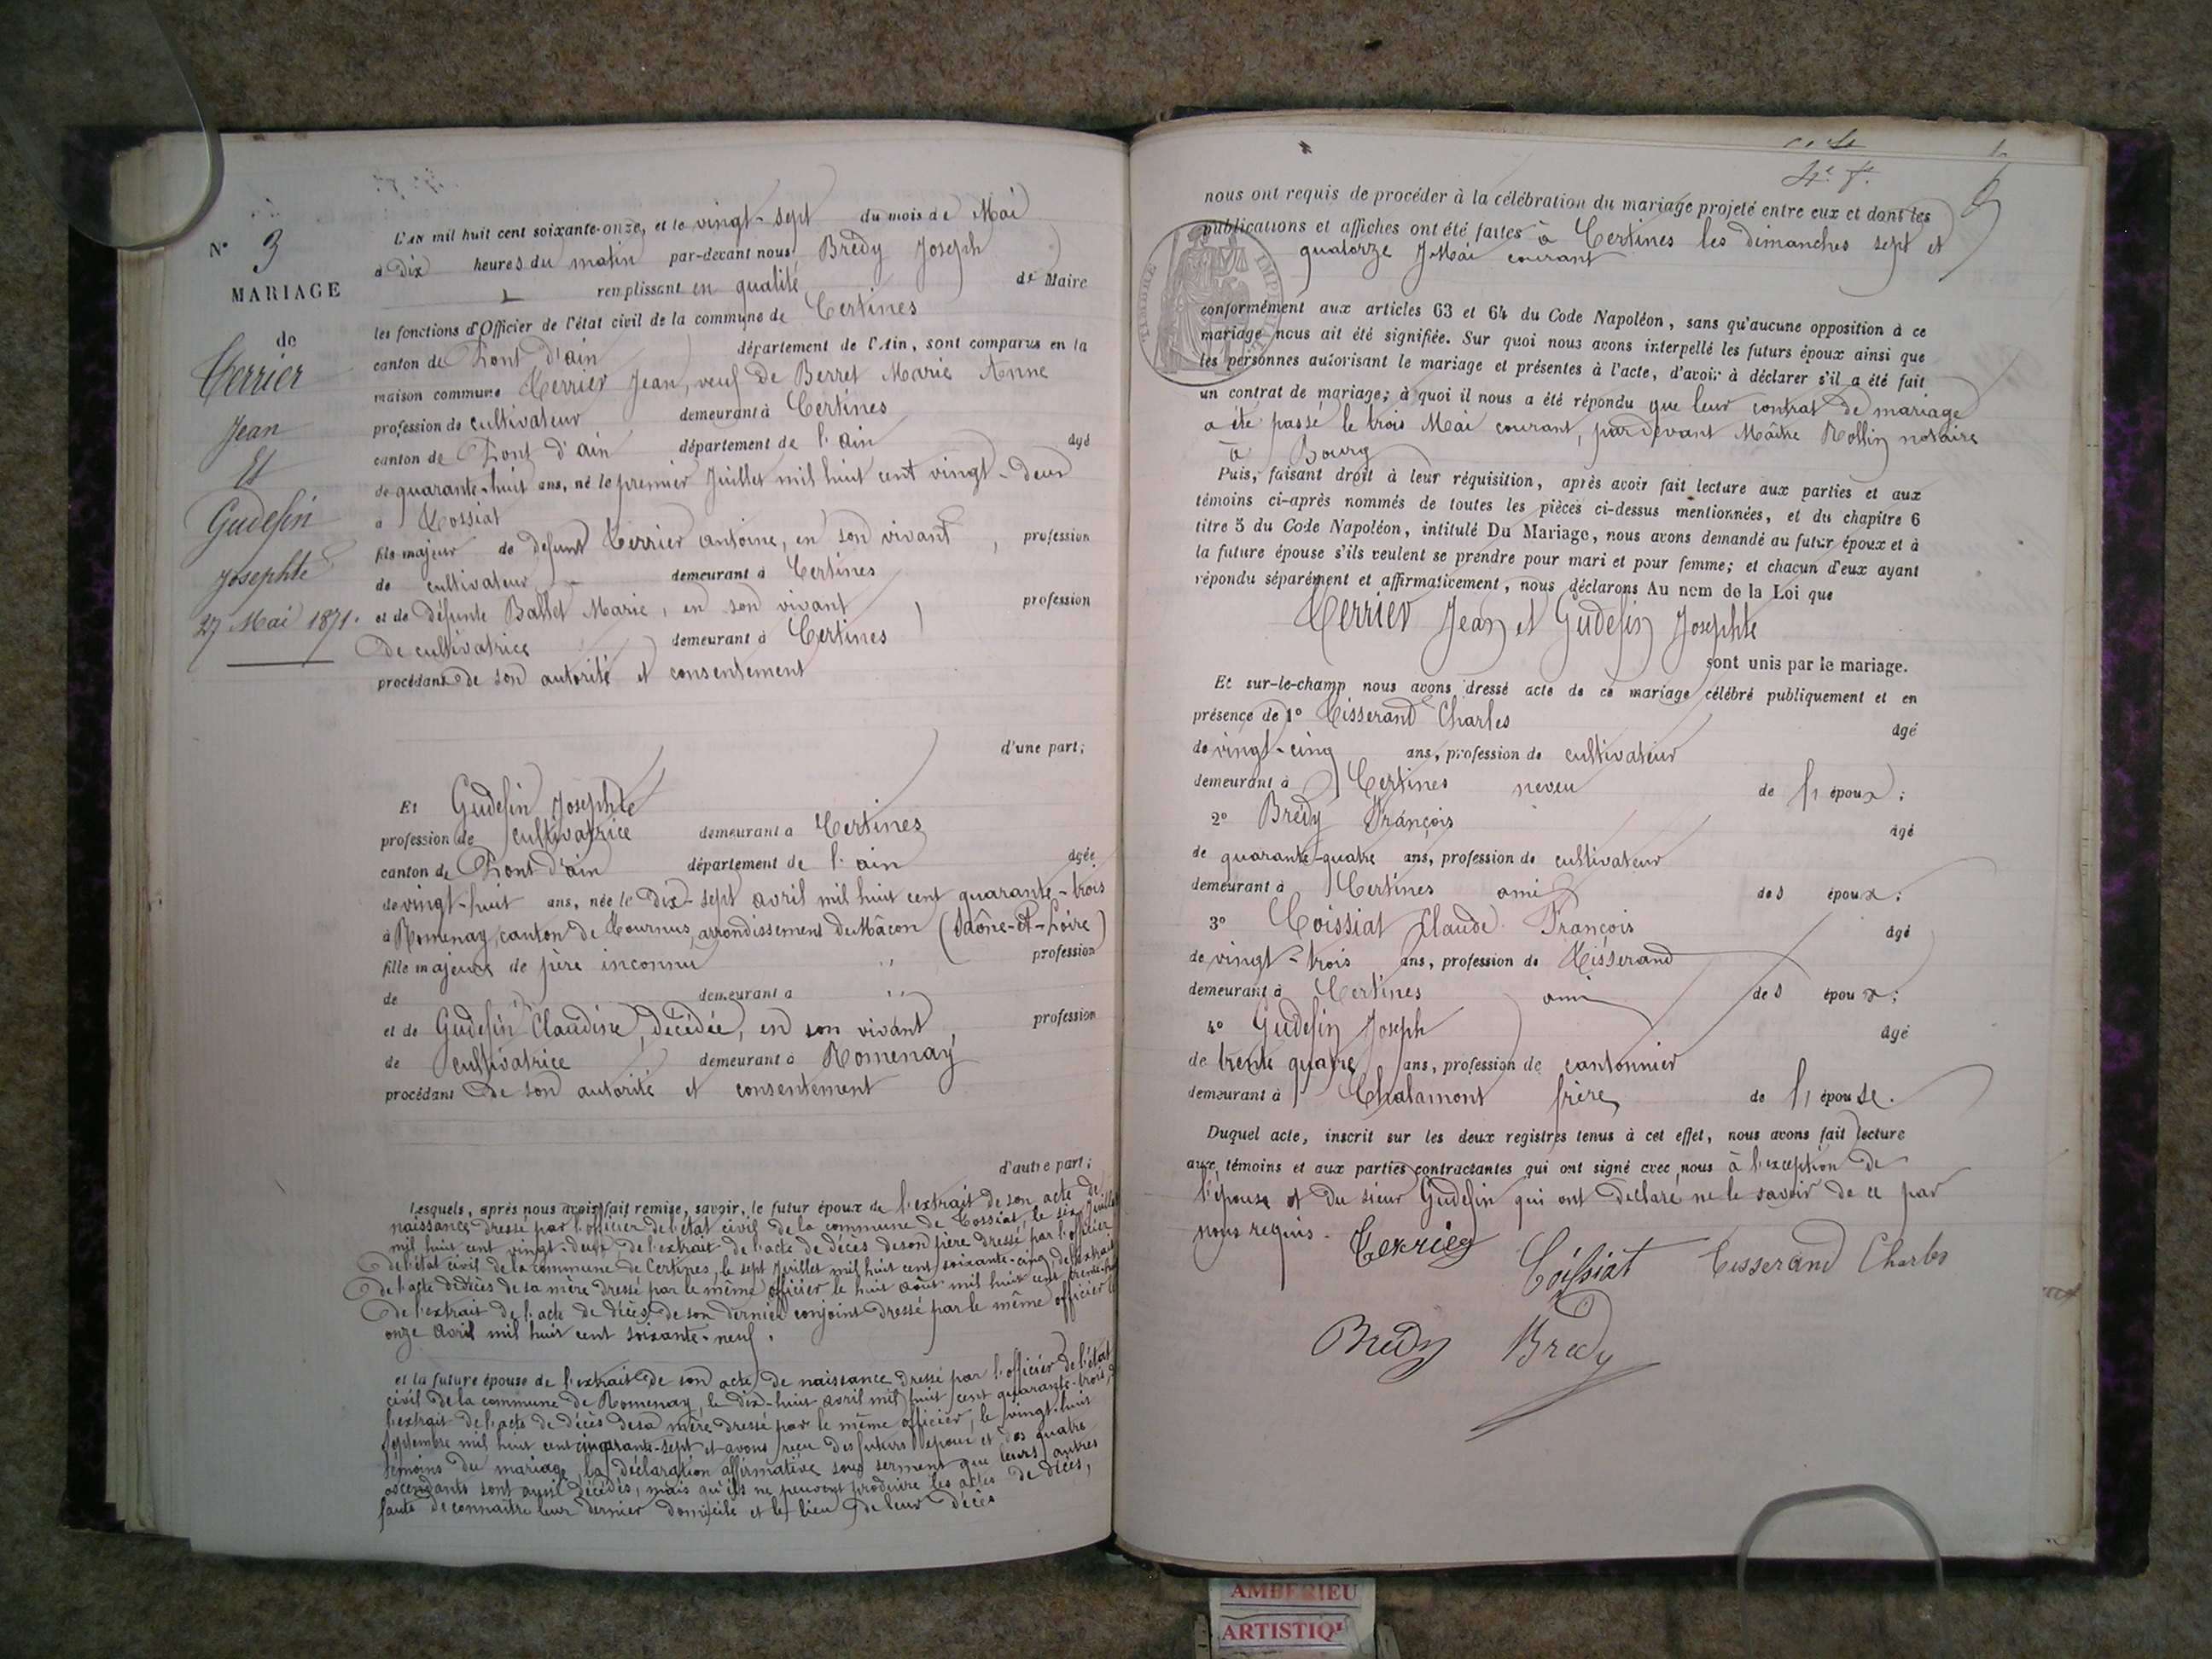 N° 3
MARIAGE
de
Terrier
Jean
Et
Gudefin
Josephte
27 Mai 1871.
L'AN mil huit cent soixante-onze, et le vingt-sept du mois de Mai
à Dix heures du matin par-devant nous Brédy Joseph
remplissant en qualité de Maire
les fonctions d'Officier de l'état civil de la commune de Certines
canton de Pont d'ain département de l'Ain, sont comparus en la
maison commune Terrier Jean, veuf de Berret Marie Anne
profession de cultivateur demeurant à Certines
canton de Pont d'ain département de l'ain âgé
de quarante-huit ans, né le premier Juillet mil huit cent vingt-deux
à Tossiat
fils majeur de défunt Terrier antoine, en son vivant, profession
de cultivateur demeurant à Certines
et de défunte Ballet Marie, en son vivant profession
De cultivatrice demeurant à Certines
procédant de son autorité et consentement
d'une part;
Et Gudefin Josephte
profession de cultivatrice demeurant à Certines
canton de Pont d'ain département de l'ain âgée
de vingt-huit ans, née le Dix-sept avril mil huit cent quarante-trois
à Romenay, canton de Tournus, arrondissement de Mâcon (Saône-et-Loire)
fille majeure de père inconnu " profession
de demeurant à "
et de Gudefin Claudine, décédée, en son vivant, profession
de cultivatrice demeurant à Romenay
procédant De son autorité et consentement
d'autre part;
Lesquels, après nous avoir fait remise, savoir, le futur époux de l'extrait de son acte de
naissance dressé par l'officier de l'état civil de la commune de Tossiat, le six Juillet
mil huit cent vingt-deux, de l'extrait de l'acte de décès de son père dressé par l'officier
de l'état civil de la commune de Certines, le sept Juillet mil huit cent soixante-cinq, de l'extrait
de l'acte de décès de sa mère dressé par le même officier le huit août mil huit cent
de l'extrait de l'acte de décès de son dernier conjoint dressé par le même officier le
onze avril mil huit cent soixante-neuf.
et la future épouse de l'extrait de son acte de naissance dressé par l'officier de l'état
civil de la commune de Romenay, le dix-huit avril mil huit cent quarante-trois,
l'extrait de l'acte de décès de sa mère dressé par le même officier, le vingt-huit
Septembre mil huit cent et avons reçu des futurs époux et des quatre
témoins du mariage la déclaration affirmative sous serment que leurs autres
ascendants sont aussi décédés, mais qu'ils ne peuvent produire les actes de décès,
faute de connaître leur dernier domicile et le lieu de leur décès
4e f.
nous ont requis de procéder à la célébration du mariage projeté entre eux et dont les
publications et affiches ont été faites à Certines les dimanches sept et
quatorze Mai courant
TIMBRE IMPÉRIAL
conformément aux articles 63 et 64 du Code Napoléon, sans qu'aucune opposition à ce
mariage nous ait été signifiée. Sur quoi nous avons interpellé les futurs époux ainsi que
les personnes autorisant le mariage et présentes à l'acte, d'avoir à déclarer s'il a été fait
un contrat de mariage; à quoi il nous a été répondu que leur contrat de mariage
a été passé le trois Mai courant, par devant Maître Rollin notaire
à Bourg
Puis, faisant droit à leur réquisition, après avoir fait lecture aux parties et aux
témoins ci-après nommés de toutes les pièces ci-dessus mentionnées, et du chapitre 6
titre 5 du Code Napoléon, intitulé Du Mariage, nous avons demandé au futur époux et à
la future épouse s'ils veulent se prendre pour mari et pour femme; et chacun d'eux ayant
répondu séparément et affirmativement, nous déclarons Au nom de la Loi que
Terrier Jean et Gudefin Josephte
sont unis par le mariage.
Et sur-le-champ nous avons dressé acte de ce mariage célébré publiquement et en
présence de 1° Tisserand Charles âgé
de vingt-cinq ans, profession de cultivateur
demeurant à Certines neveu de l'époux;
2° Brédy François âgé
de quarante-quatre ans, profession de cultivateur
demeurant à Certines ami des époux;
3° Coissiat Claude François âgé
de vingt-trois ans, profession de Tisserand
demeurant à Certines ami des époux;
4° Gudefin Joseph âgé
de trente quatre ans, profession de cantonnier
demeurant à Chalamont frère de l'épouse.
Duquel acte, inscrit sur les deux registres tenus à cet effet, nous avons fait lecture
aux témoins et aux parties contractantes qui ont signé avec nous à l'exception de
l'épouse et du sieur Gudefin qui ont déclaré ne le savoir de ce par
nous requis. Terrier Coissiat Tisserand Charles
Bredy Bredy
AMBERIEU
ARTISTIQ